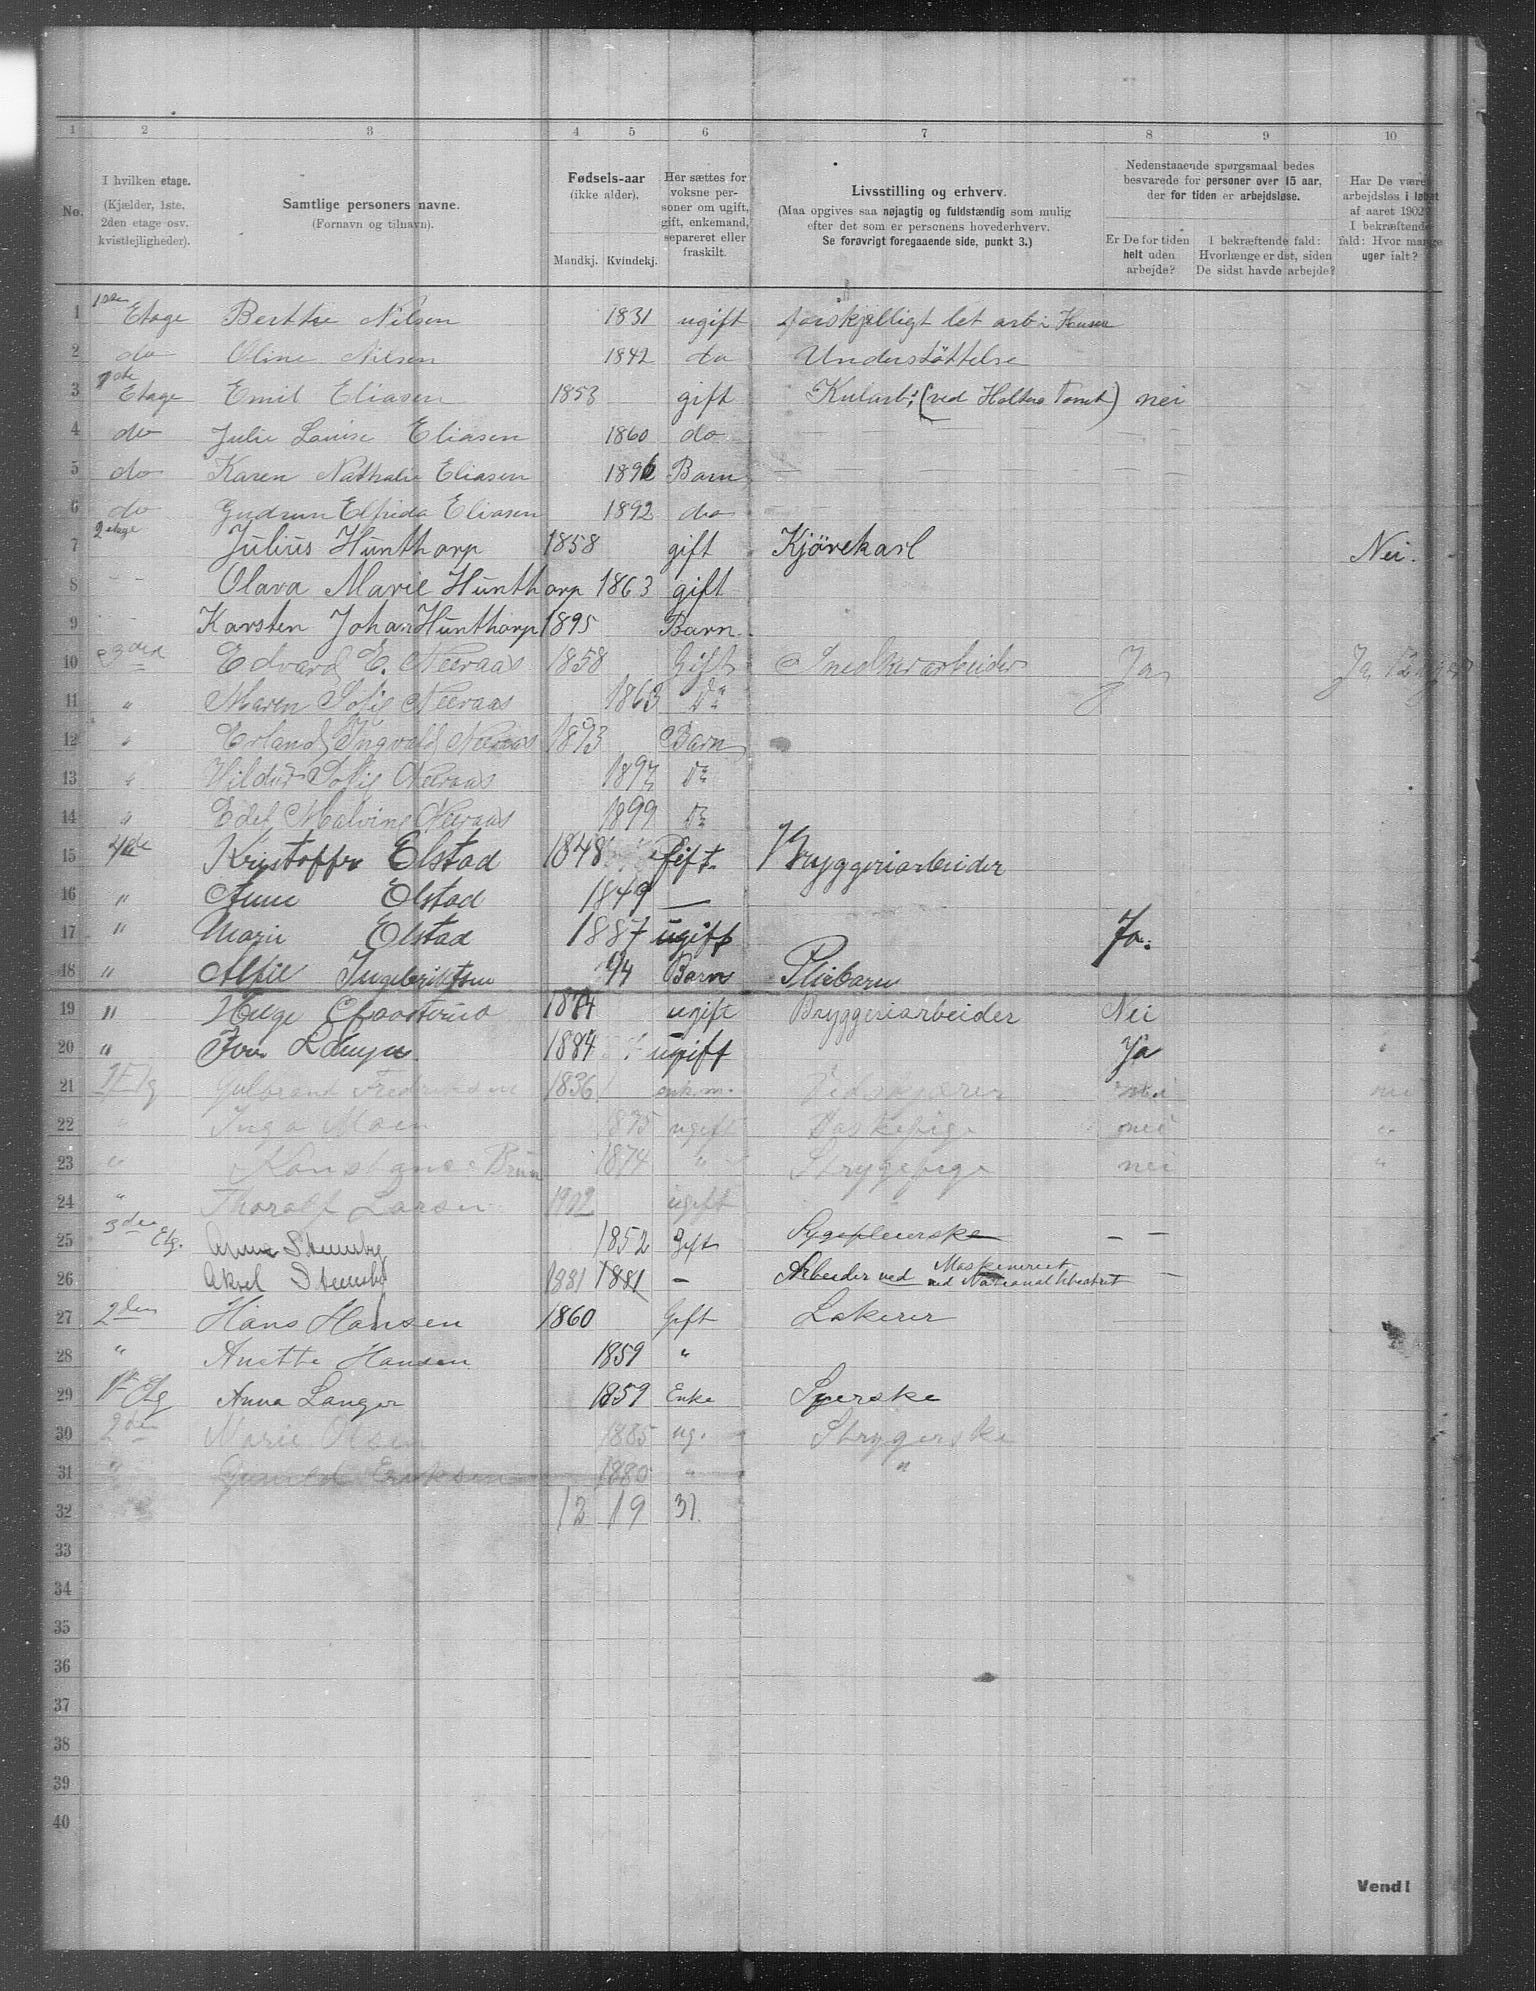 1 2 3 4 5 6 7 8 9 10
No.
I hvilken etage.
(Kjælder, 1ste,
2den etage osv.
kvistlejligheder).
Samtlige personers navne.
(Fornavn og tilnavn).
Fødsels-aar
(ikke alder).
Mandkj. Kvindekj.
Her sættes for
voksne per-
soner om ugift,
gift, enkemand,
separeret eller
fraskilt.
Livsstilling og erhverv.
(Maa opgives saa nøjagtig og fuldstændig som mulig
efter det som er personens hovederhverv.
Se forøvrigt foregaaende side, punkt 3.)
Nedenstaaende spørgsmaal bedes
besvarede for personer over 15 aar,
der for tiden er arbejdsløse.
Er De for tiden
helt uden
arbejde?
I bekræftende fald:
Hvorlænge er det, siden
De sidst havde arbejde?
Har De været
arbejdsløs i løbet
af aaret 1902?
I bekræftende
fald: Hvor mange
uger ialt?
1 Etage Berthe Nilsen 1831 ugift forskjelligt let arb i Huset
2 do Oline Nilsen 1842 do Understøttelse
3 Etage Emil Eliasen 1853 gift Kularb: (ved Holters Tomt) nei
4 do Julie Louise Eliasen 1860 do
5 do Karen Nathalie Eliasen 1896 Barn
6 do Gudrun Elfrida Eliasen 1892 do
7 2 etage Julius Hunthorp 1858 gift Kjørekarl Nei.
8 - - Olava Marie Hunthorp 1863 gift
9 Karsten Johan Hunthorp 1895 Barn.
10 3die Edvard E. Neeraas 1858 Gift Snedkerarbeider Ja Ja
11 " Maren Sofie Neeraas 1863 Do
12 " Erland Ingvald Neeraas 1893 Barn
13 " Hildur Sofie Neeraas 1897 Do
14 " Edel Malvine Neeraas 1899 Do
15 4de Kristoffer Elstad 1848 Gift. Bryggeriarbeider
16 " Anne Elstad 1849 —
17 " Marie Elstad 1887 ugift Ja.
18 " Alfil Ingebriktsen Barn Pleibarn
19 " Helge 1874 ugift Bryggeriarbeider Nei
20 " 1884 ugift Ja "
21 Gulbrand Fredriksen 1836 enkm. Vedskjærer nei nei
22 " Inga Moen 1875 ugift Vaskepige nei "
23 " Konstance Brun 1874 " Strygepige nei "
24 " Thoralf Larsen 1902 ugift
25 3die Etg. Anna Stensby 1852 Gift Sygepleierske — —
26 Aksel Stensby 1881 1881 — Arbeider ved Maskineriet ved Nationaltheatret —
27 2den Hans Hansen 1860 Gift Lakerer
28 " Anette Hansen 1859 "
29 1st Etg Anna Langer 1859 Enke Syerske
30 2den Marie Olsen 1885 ug. Strygerske
31 " Gunild Eriksen 1880 " "
32 12 19 31.
33
34
35
36
37
38
39
40
Vend!